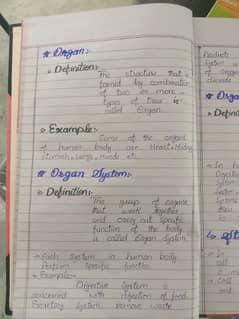 * Organ:-
→ Definition:-
The structure that
formed by combination
of two or more
types of tissue is
called Organ.
→ Example:-
Some of the organs
of human body are Heart, Kidney
Stomach, Lungs, Hands etc.
* Organ System:-
→ Definition:-
The group of organs
that work together
and carry out specific
function of the body
is called Organ System.
→ Each System in human body
Perform Specific function.
→ Example:-
Digestive System is
concerned with digestion of food.
Excretory System remove waste
Products
System is
of oxygen
dioxide
* Orga
→ Defini
→ In h
Digestive
System
System